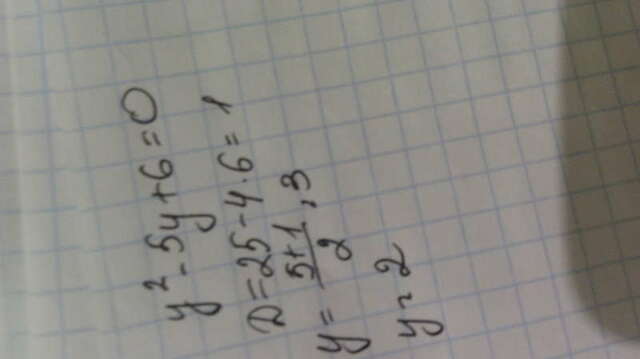 y² - 5y + 6 = 0
D = 25 - 4·6 = 1
y = (5+1)/2 = 3
y = 2